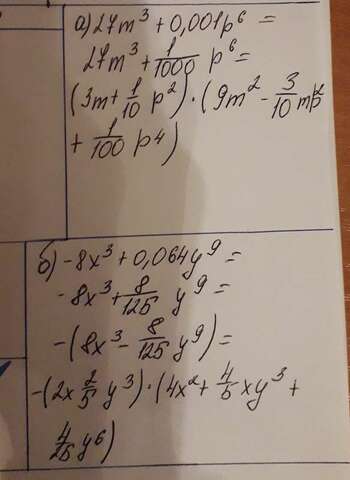 а) 27m³ + 0,001p⁶ =
27m³ + 1/1000 p⁶ =
(3m + 1/10 p²) · (9m² - 3/10 mp²
+ 1/100 p⁴)
б) -8x³ + 0,064y⁹ =
-8x³ + 8/125 y⁹ =
-(8x³ - 8/125 y⁹) =
-(2x 2/5 y³) · (4x² + 4/5 xy³ +
4/25 y⁶)